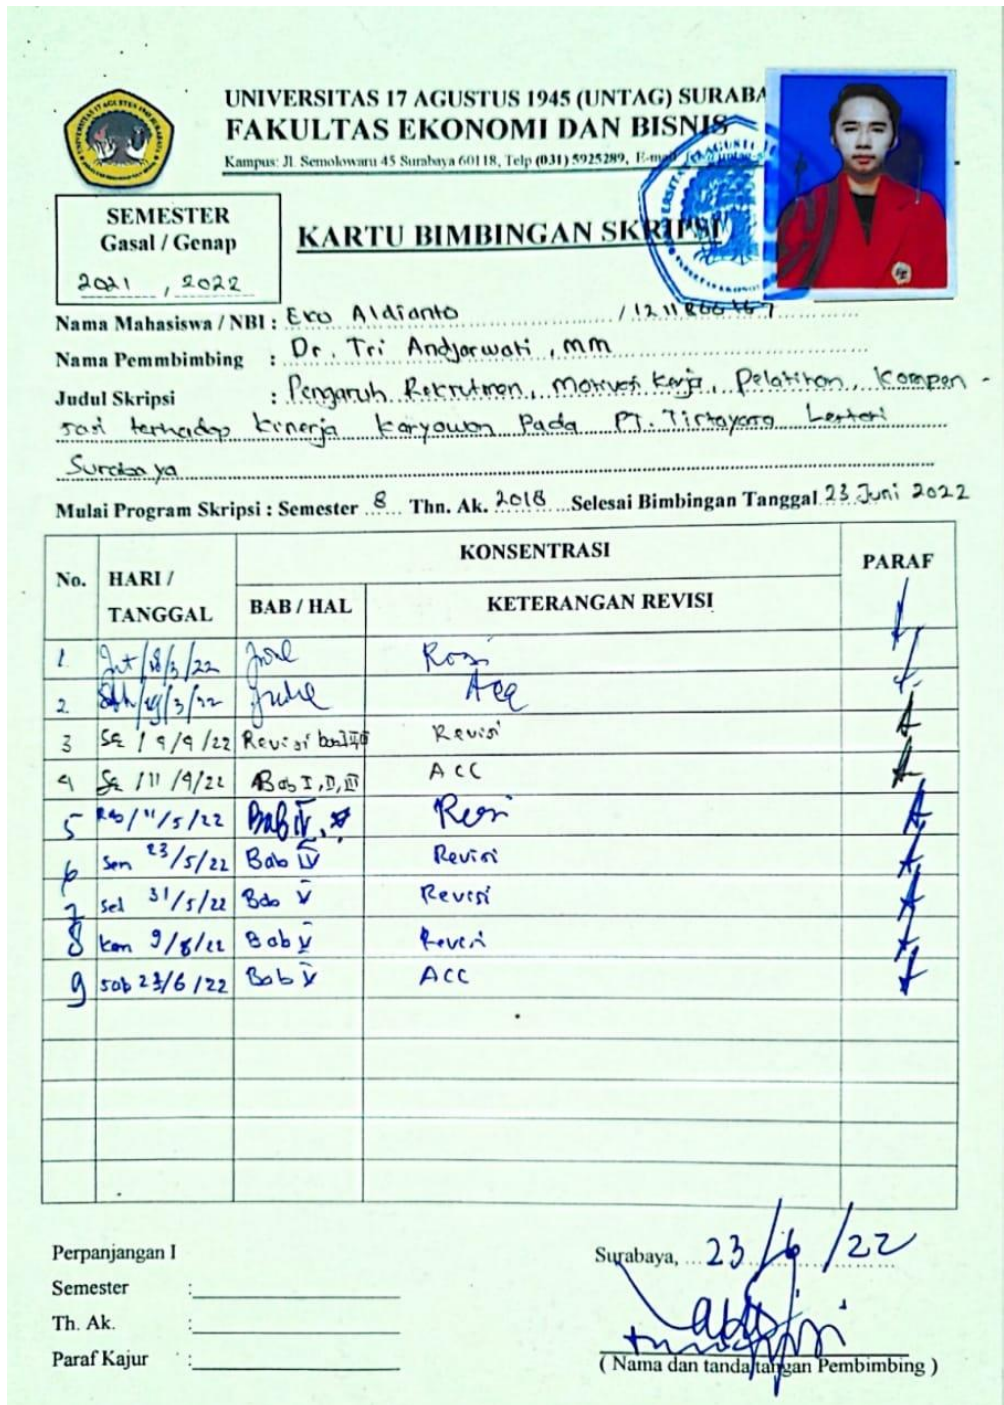 UNIVERSITAS 17 AGUSTUS 1945 (UNTAG) SURABA
FAKULTAS EKONOMI DAN BISNIS
Kampus: Jl. Semolowaru 45 Surabaya 60118, Telp (031) 5925289, E-mail
SEMESTER
Gasal / Genap
2021 , 2022
KARTU BIMBINGAN SKRIPSI
Nama Mahasiswa / NBI : Eko Aldianto /
Nama Pemmbimbing : Dr. Tri Andjarwati, MM
Judul Skripsi : Pengaruh Rekrutmen, Motivasi Kerja, Pelatihan, Kompen -
sasi terhadap kinerja karyawan Pada PT. Tirtayasa Lestari
Surabaya
Mulai Program Skripsi : Semester 8 Thn. Ak. 2018 Selesai Bimbingan Tanggal 23 Juni 2022
No. HARI / TANGGAL KONSENTRASI PARAF
BAB / HAL KETERANGAN REVISI
1. 18/3/22
2 /3/22 Acc
3 Revisi Revisi
4 Bab I, II, III ACC
5 11/5/22 Bab IV Revisi
6 Sen 23/5/22 Bab IV Revisi
7 Sel 31/5/22 Bab V Revisi
8 Kam Bab V Revisi
9 sab 23/6/22 Bab V ACC
Perpanjangan I
Semester :
Th. Ak. :
Paraf Kajur :
Surabaya, 23/6/22
( Nama dan tanda tangan Pembimbing )